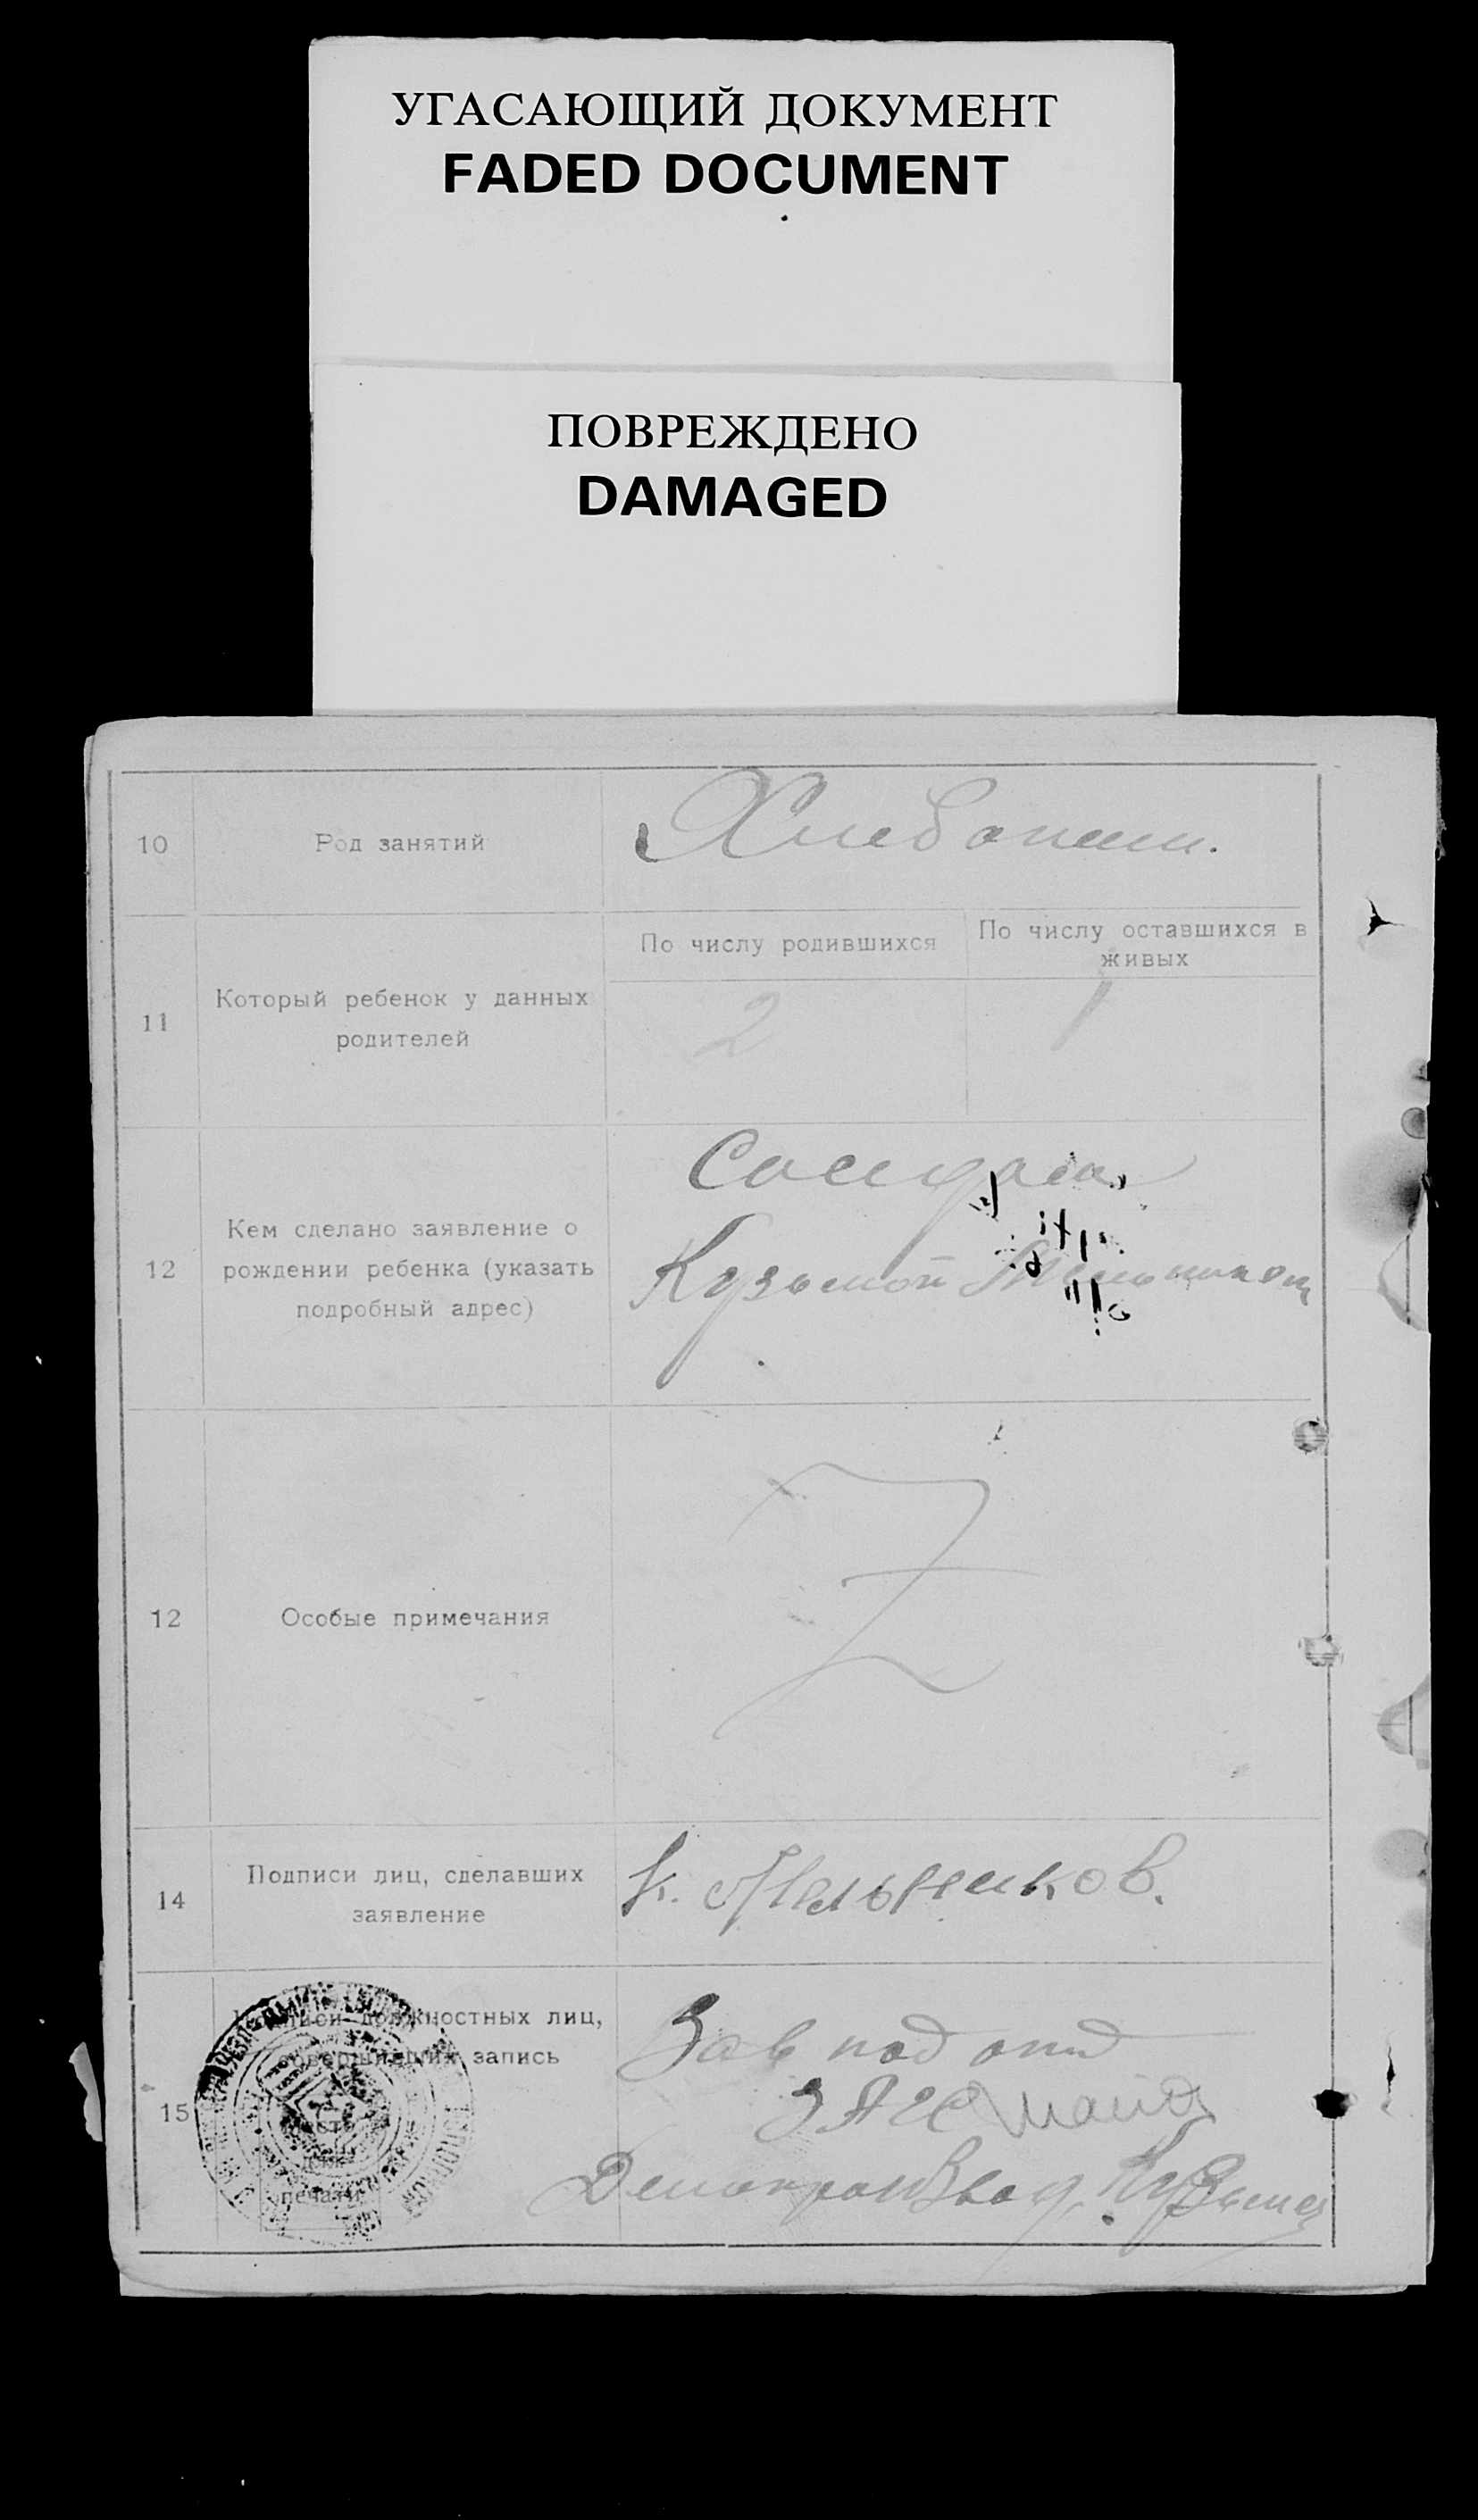 УГАСАЮЩИЙ ДОКУМЕНТ
FADED DOCUMENT
ПОВРЕЖДЕНО
DAMAGED
10 Род занятий Хлебопаш.
11 Который ребенок у данных родителей
По числу родившихся
2
По числу оставшихся в живых
1
12 Кем сделано заявление о
рождении ребенка (указать
подробный адрес)
Кузьмой
12 Особые примечания
14 Подписи лиц, сделавших
заявление
К. Мельников.
15 должностных лиц,
запись
печати
Зав под отд
ЗАГС